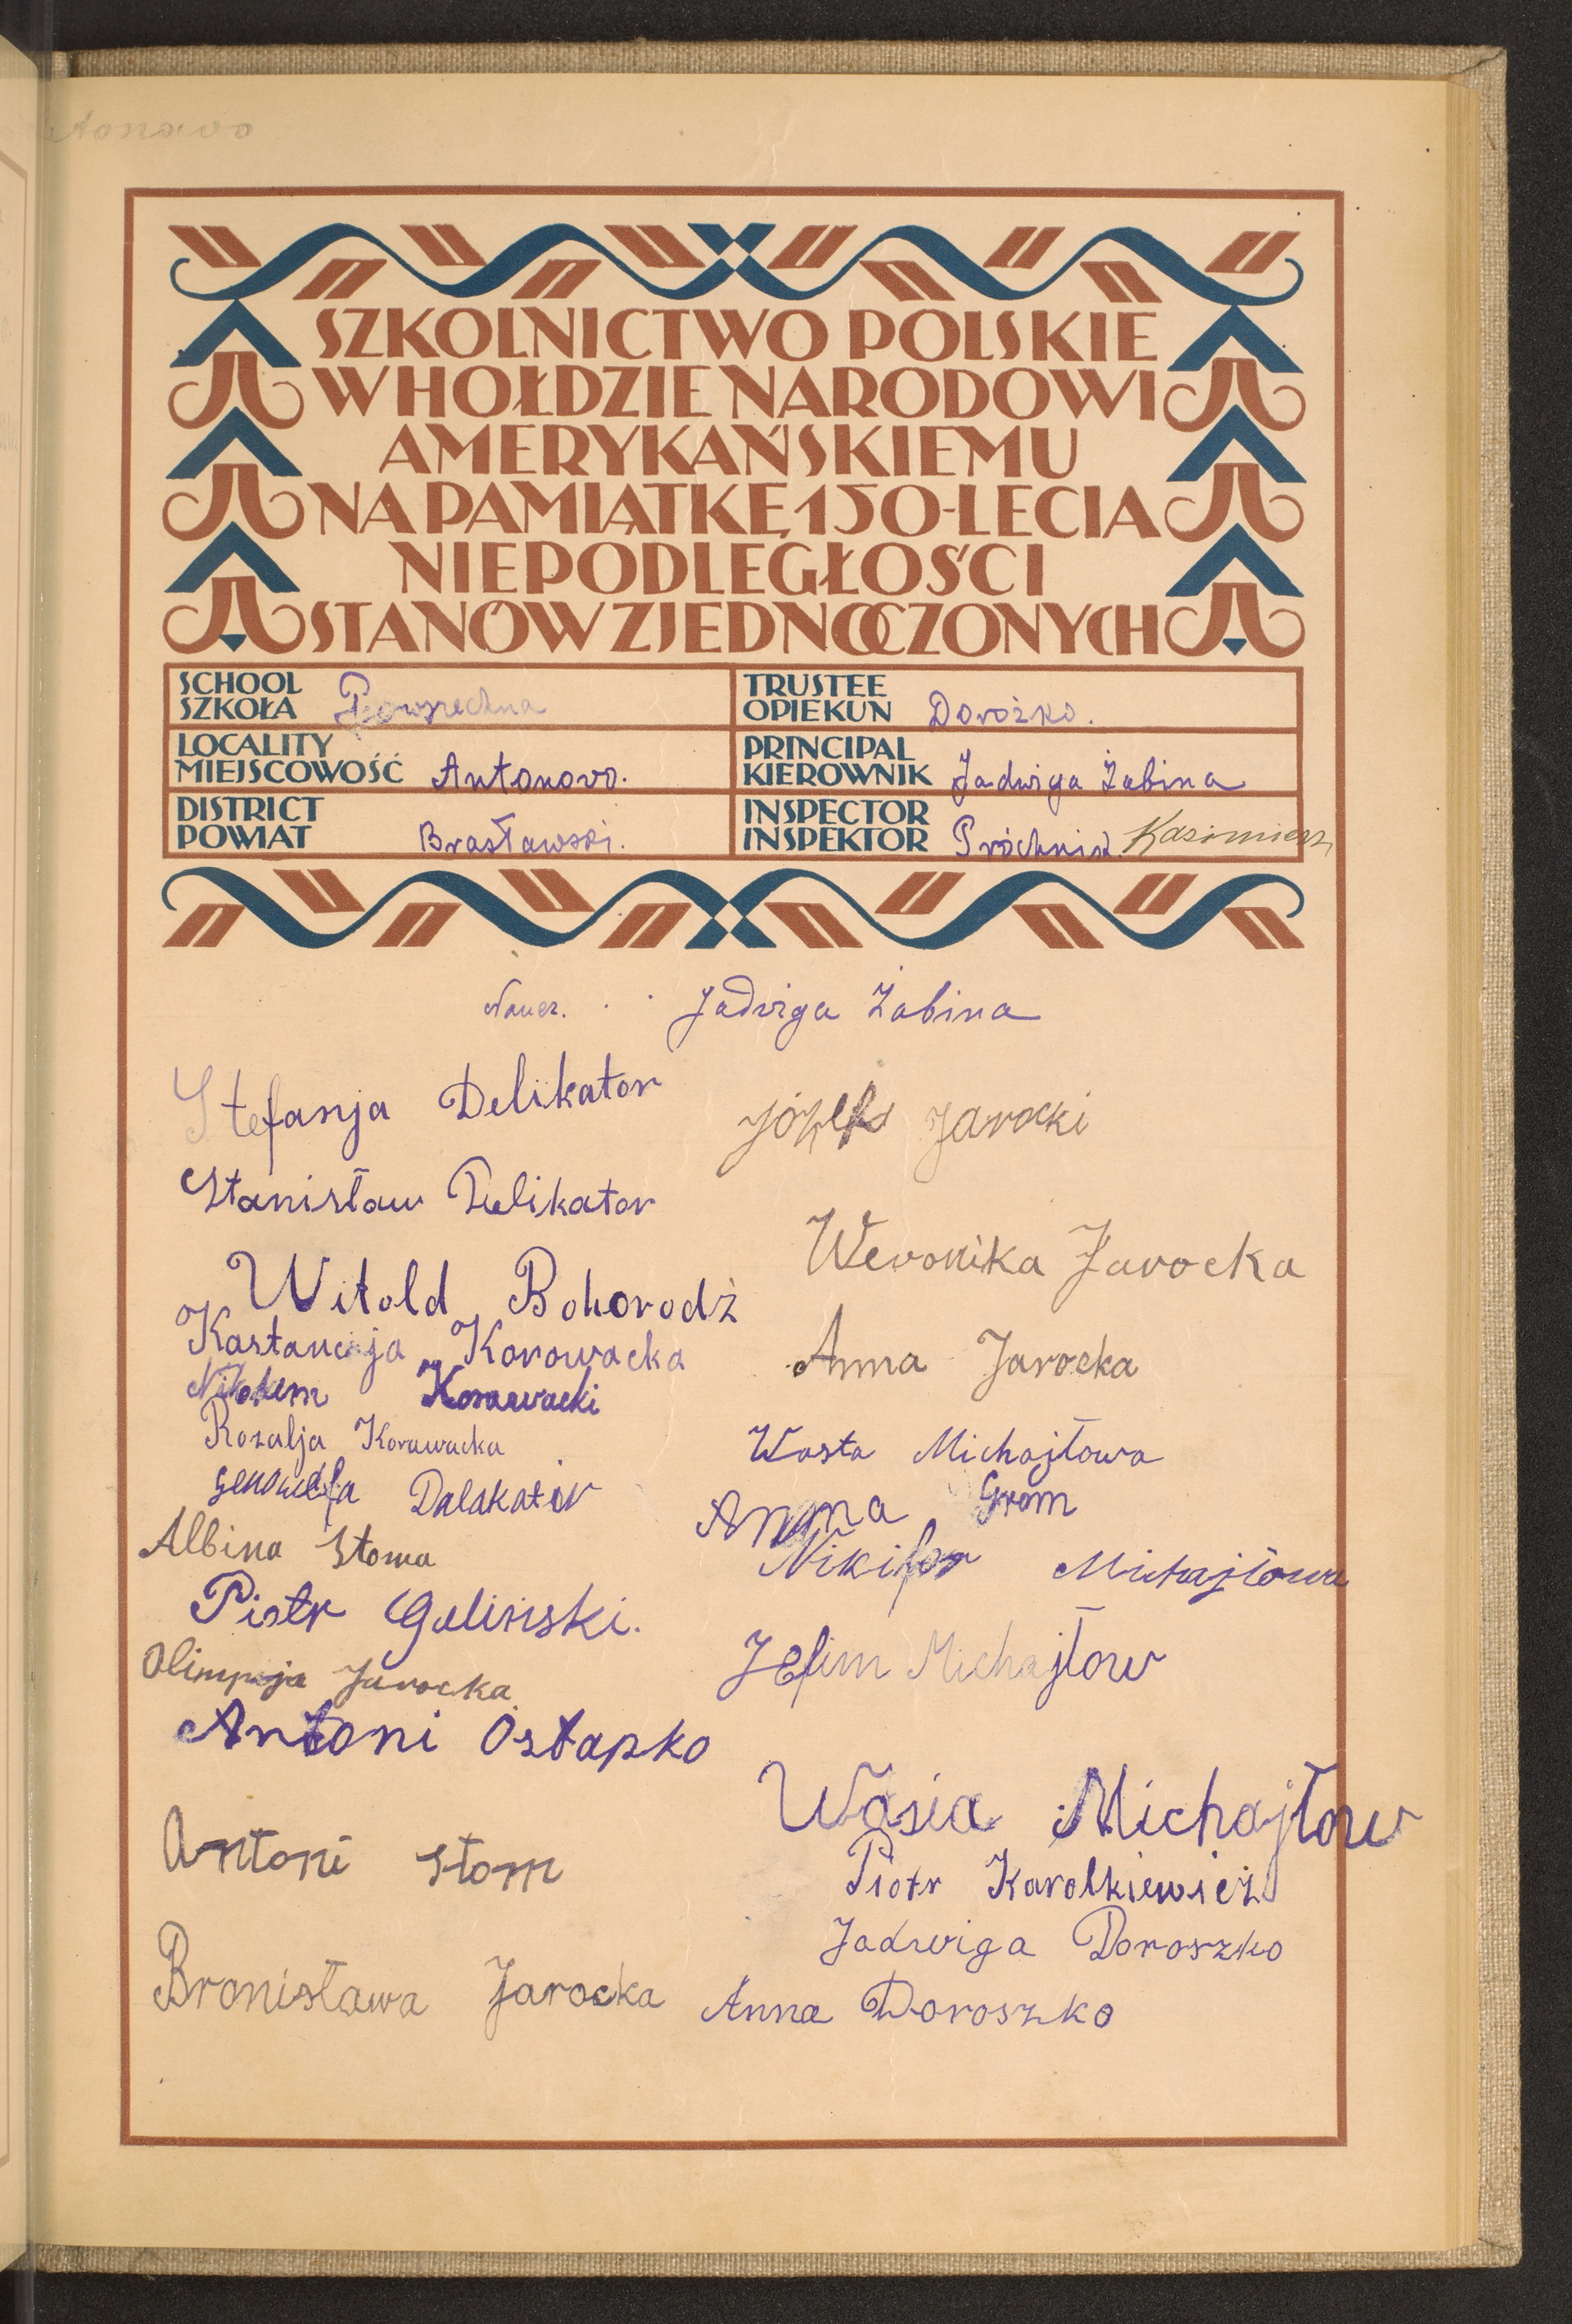 Antonowo
SZKOLNICTWO POLSKIE
W HOŁDZIE NARODOWI
AMERYKAŃSKIEMU
NA PAMIĄTKĘ 150-LECIA
NIEPODLEGŁOŚCI
STANÓW ZJEDNOCZONYCH
SCHOOL
SZKOŁA Powszechna
TRUSTEE
OPIEKUN Dorożko.
LOCALITY
MIEJSCOWOŚĆ Antonovo.
PRINCIPAL
KIEROWNIK Jadwiga Żabina
DISTRICT
POWIAT Brasławski.
INSPECTOR
INSPEKTOR Próchnik Kazimierz
Naucz. Jadwiga Żabina
Stefanja Delikator
Stanisław Delikator
Witold Bohorodź
Kastancja Korowacka
Nikodem Korawacki
Rozalja Korawacka
genowefa Dalakator
Albina Stoma
Piotr Guliński.
Olimpija Jarocka
Antoni Ostapko
Antoni Stom
Bronisława Jarocka
Józef Jarocki
Weronika Jarocka
Anna Jarocka
Wasta Michajłowa
Anna Grom
Nikifor Michajłowa
Jefim Michajłow
Wasia Michajłow
Piotr Karolkiewicz
Jadwiga Doroszko
Anna Doroszko